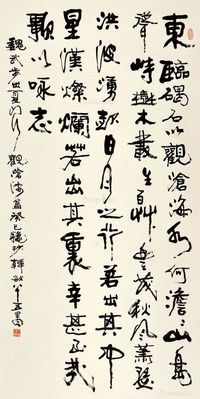 東臨碣石以觀滄海水何澹澹山島
聳峙樹木叢生百草豐茂秋風蕭瑟
洪波湧起日月之行若出其中
星漢燦爛若出其裏幸甚至哉
歌以咏志
魏武步出夏門行觀滄海篇癸巳韓書